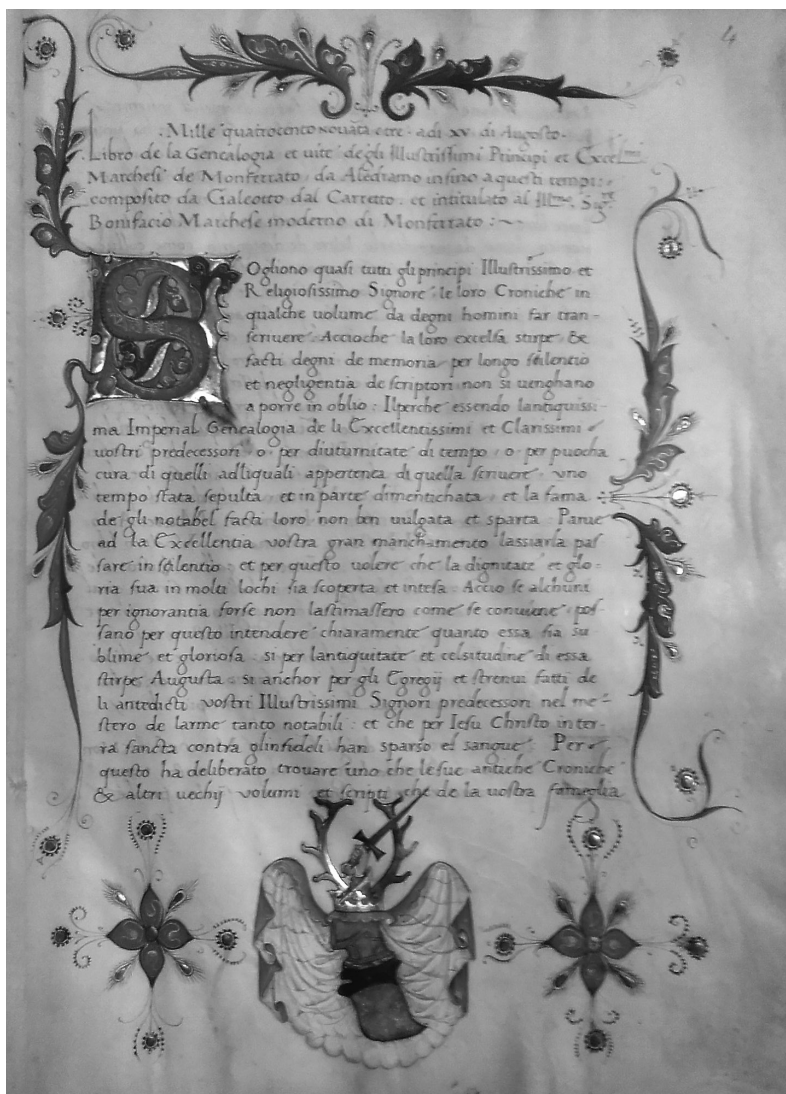 4
.Mille quatrocento novāta e tre · adi xv di Augosto.
Libro de la Genealogia et uite degli Illustrissimi Principi et Excel
Marchesi de Monferrato, da Aledramo insino a questi tempi:
composito da Galeotto dal Carretto, et intitulato al Illmo. Sigre
Bonifacio Marchese moderno di Monferrato :~
SOgliono quasi tutti gli principi Illustrissimo et
Religiosissimo Signore, le loro Croniche in
qualche uolume da degni homini far tran-
scriuere. Accioche la loro excelsa stirpe &
facti degni de memoria per longo silentio
et negligentia de scriptori non si uenghano
a porre in oblio: Ilperche essendo lantiquissi-
ma Imperial Genealogia de li Excellentissimi et Clarissimi
uostri predecessori, o per diuturnitate di tempo, o per puocha
cura di quelli adliquali appertenea di quella scriuere, uno
tempo stata sepulta, et in parte dimentichata, et la fama
de gli notabel facti loro non ben uulgata et sparta. Parue
ad la Excellentia vostra gran manchamento lassiarla pas
sare in silentio: et per questo uolere che la dignitate et glo-
ria sua in molti lochi sia scoperta et intesa. Accio se alchuni
per ignorantia forse non lastimassero come se conuiene, pos-
sano per questo intendere chiaramente quanto essa sia su
blime et gloriosa. si per lantiquitate et celsitudine di essa
stirpe Augusta. si anchor per gli Egregij et strenui fatti de
li antedicti vostri Illustrissimi Signori predecessori nel me-
stero de larme tanto notabili: et che per Iesu Christo in ter-
ra sancta contra glinfideli han sparso el sangue. Per
questo ha deliberato trouare uno che le sue antiche Croniche
& altri uechij volumi et scripti che de la uostra fameglia